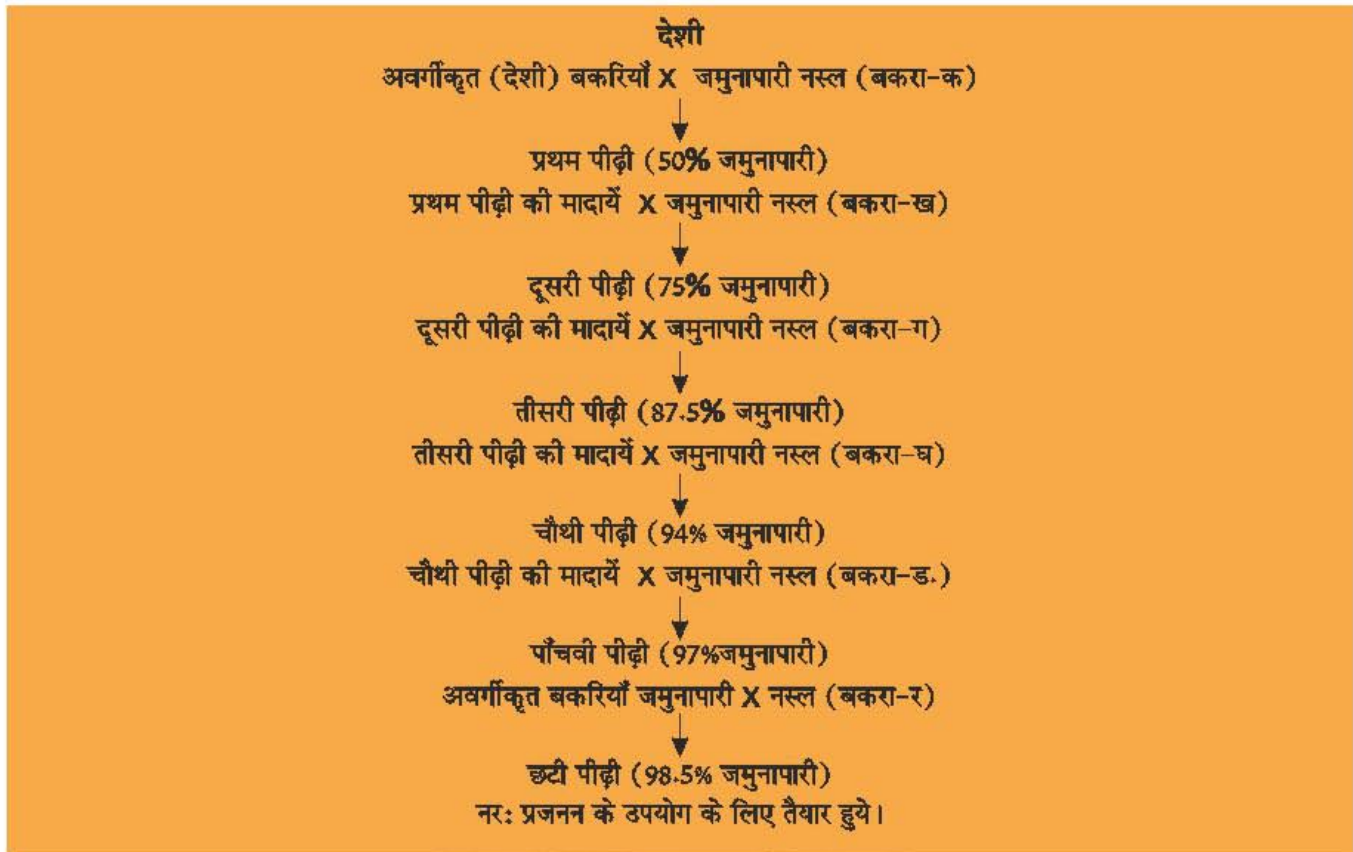 देशी
अवर्गीकृत (देशी) बकरियाँ X जमुनापारी नस्ल (बकरा-क)
प्रथम पीढ़ी (50% जमुनापारी)
प्रथम पीढ़ी की मादायें X जमुनापारी नस्ल (बकरा-ख)
दूसरी पीढ़ी (75% जमुनापारी)
दूसरी पीढ़ी की मादायें X जमुनापारी नस्ल (बकरा-ग)
तीसरी पीढ़ी (87.5% जमुनापारी)
तीसरी पीढ़ी की मादायें X जमुनापारी नस्ल (बकरा-घ)
चौथी पीढ़ी (94% जमुनापारी)
चौथी पीढ़ी की मादायें X जमुनापारी नस्ल (बकरा-ड.)
पाँचवी पीढ़ी (97%जमुनापारी)
अवर्गीकृत बकरियाँ जमुनापारी X नस्ल (बकरा-र)
छटी पीढ़ी (98.5% जमुनापारी)
नर: प्रजनन के उपयोग के लिए तैयार हुये।